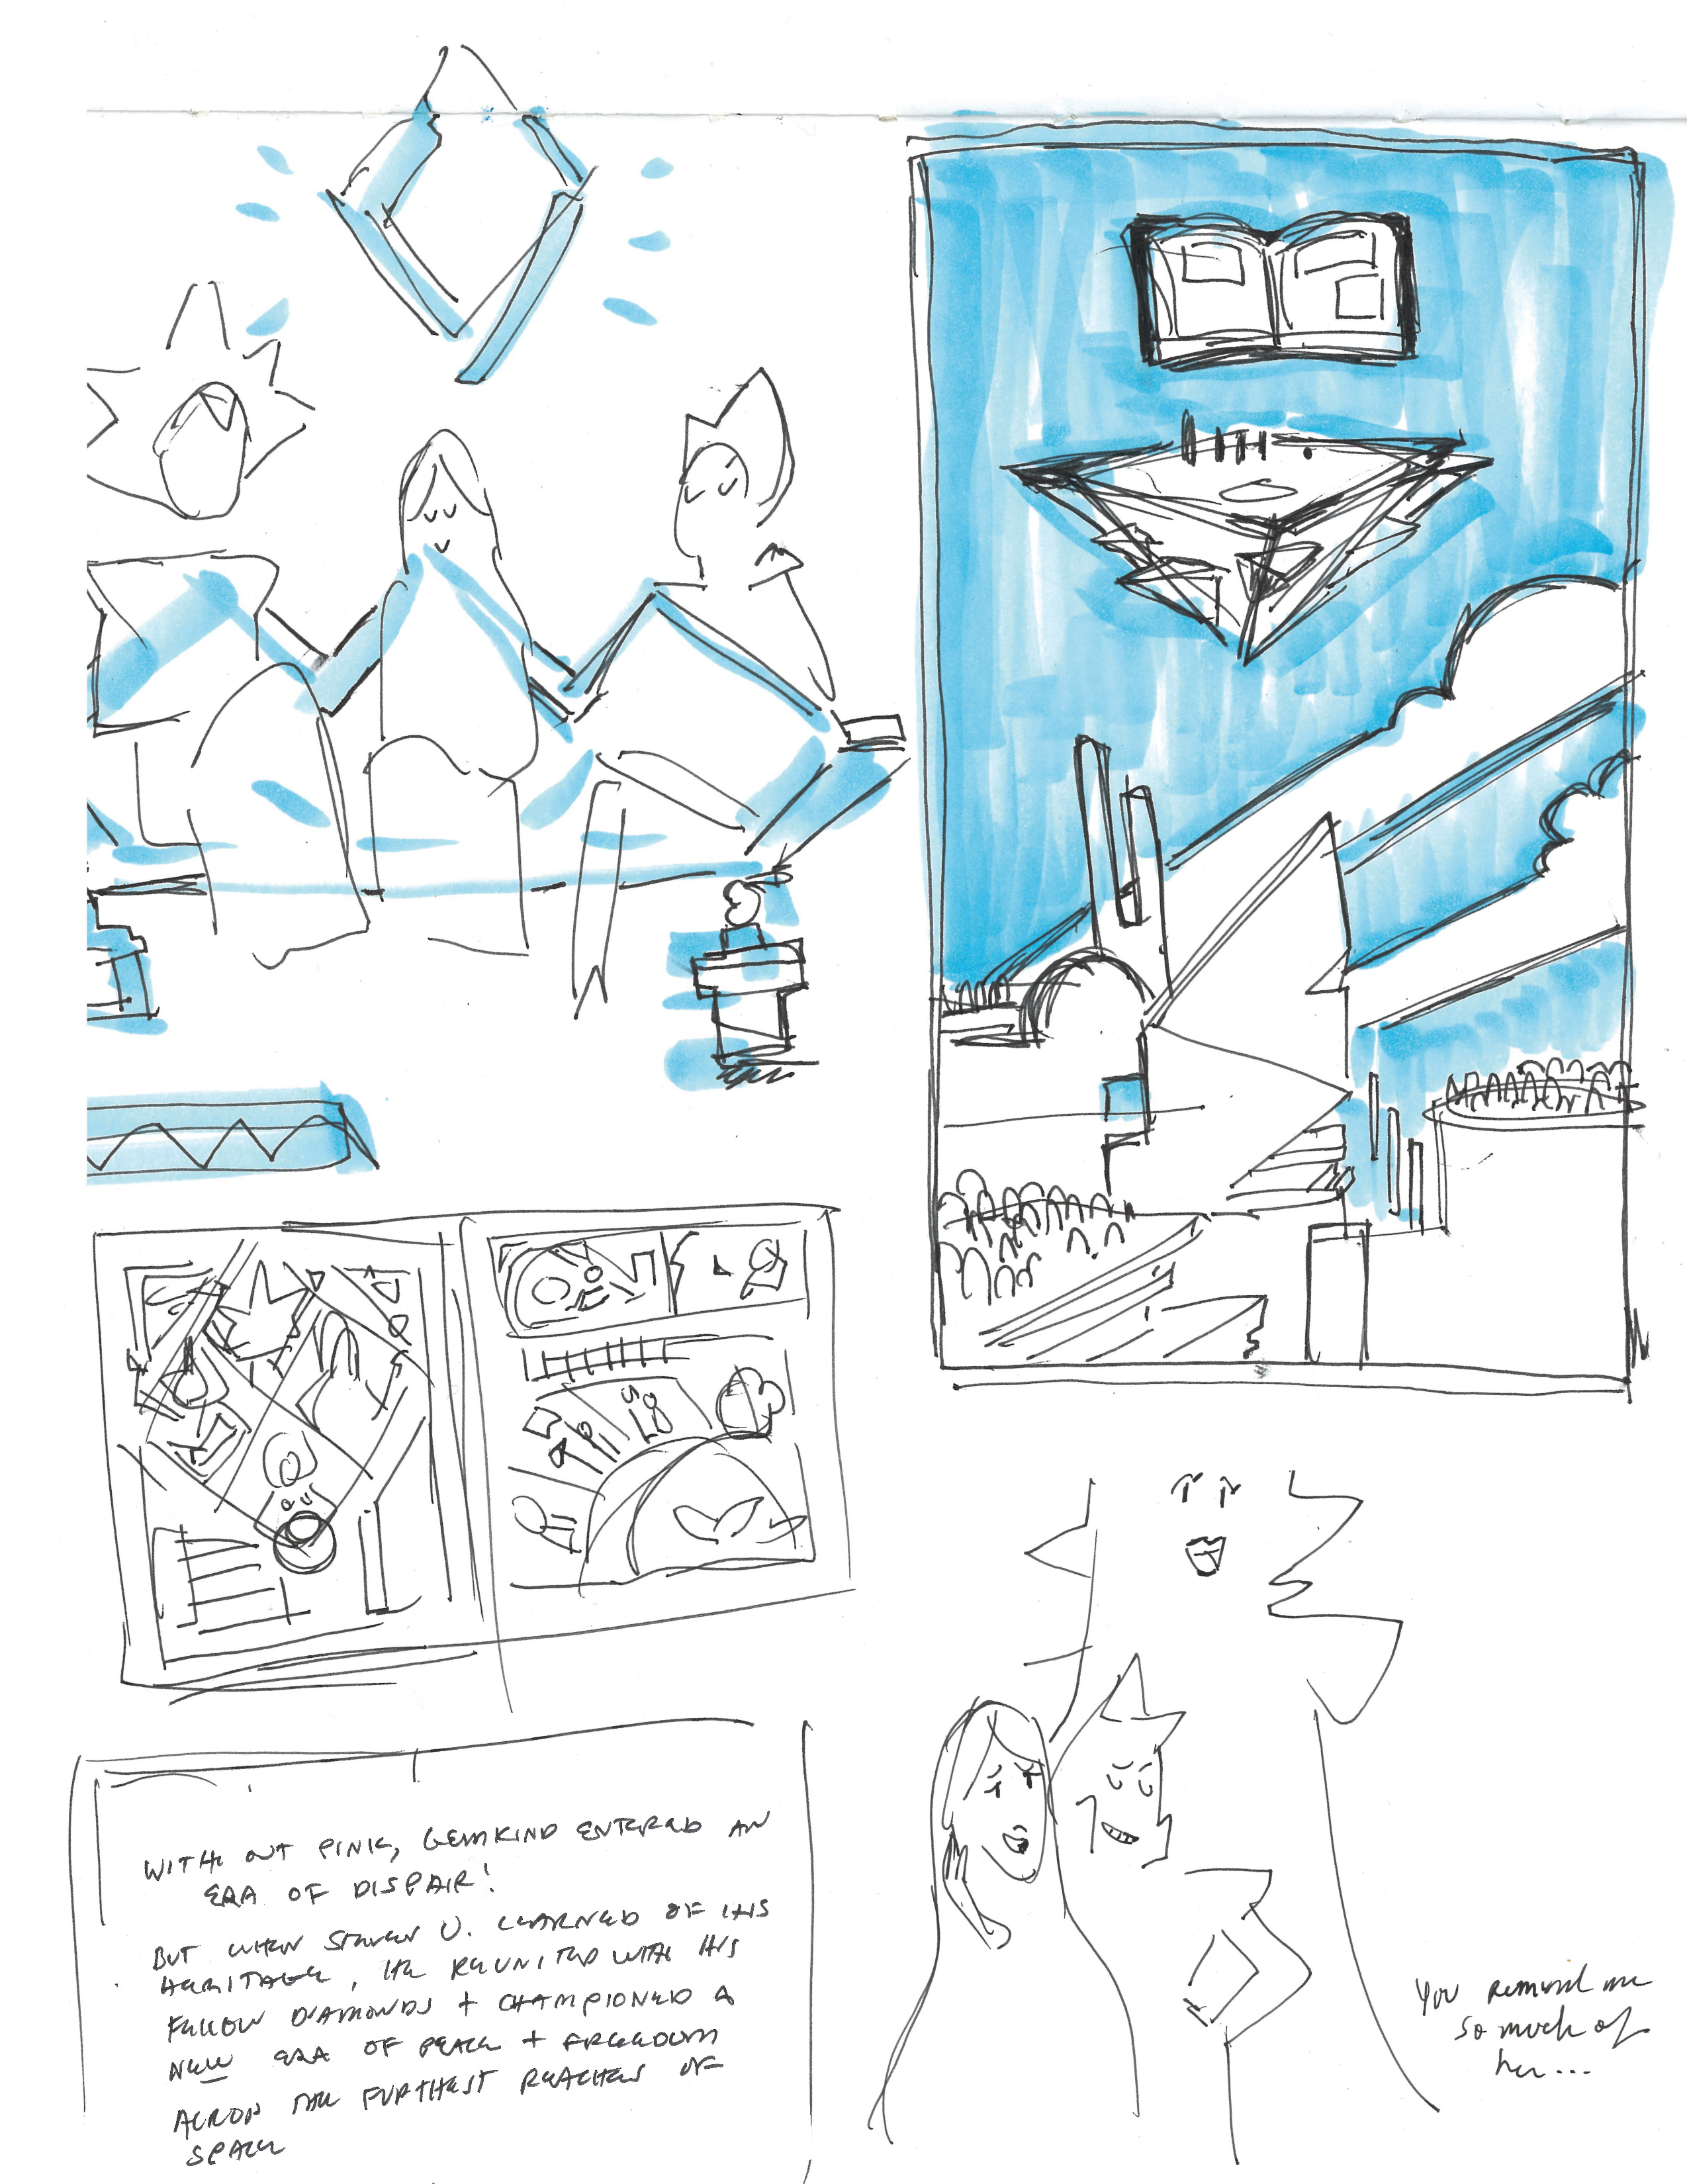 WITH OUT PINK, GEMKIND ENTERED AN
ERA OF DISPAIR!
BUT WHEN STEVEN U. LEARNED OF HIS
HERITAGE, HE REUNITED WITH HIS
FELLOW DIAMONDS + CHAMPIONED A
NEW ERA OF PEACE + FREEDOM
ACROSS THE FURTHEST REACHES OF
SPACE
You remind me
so much of
her...